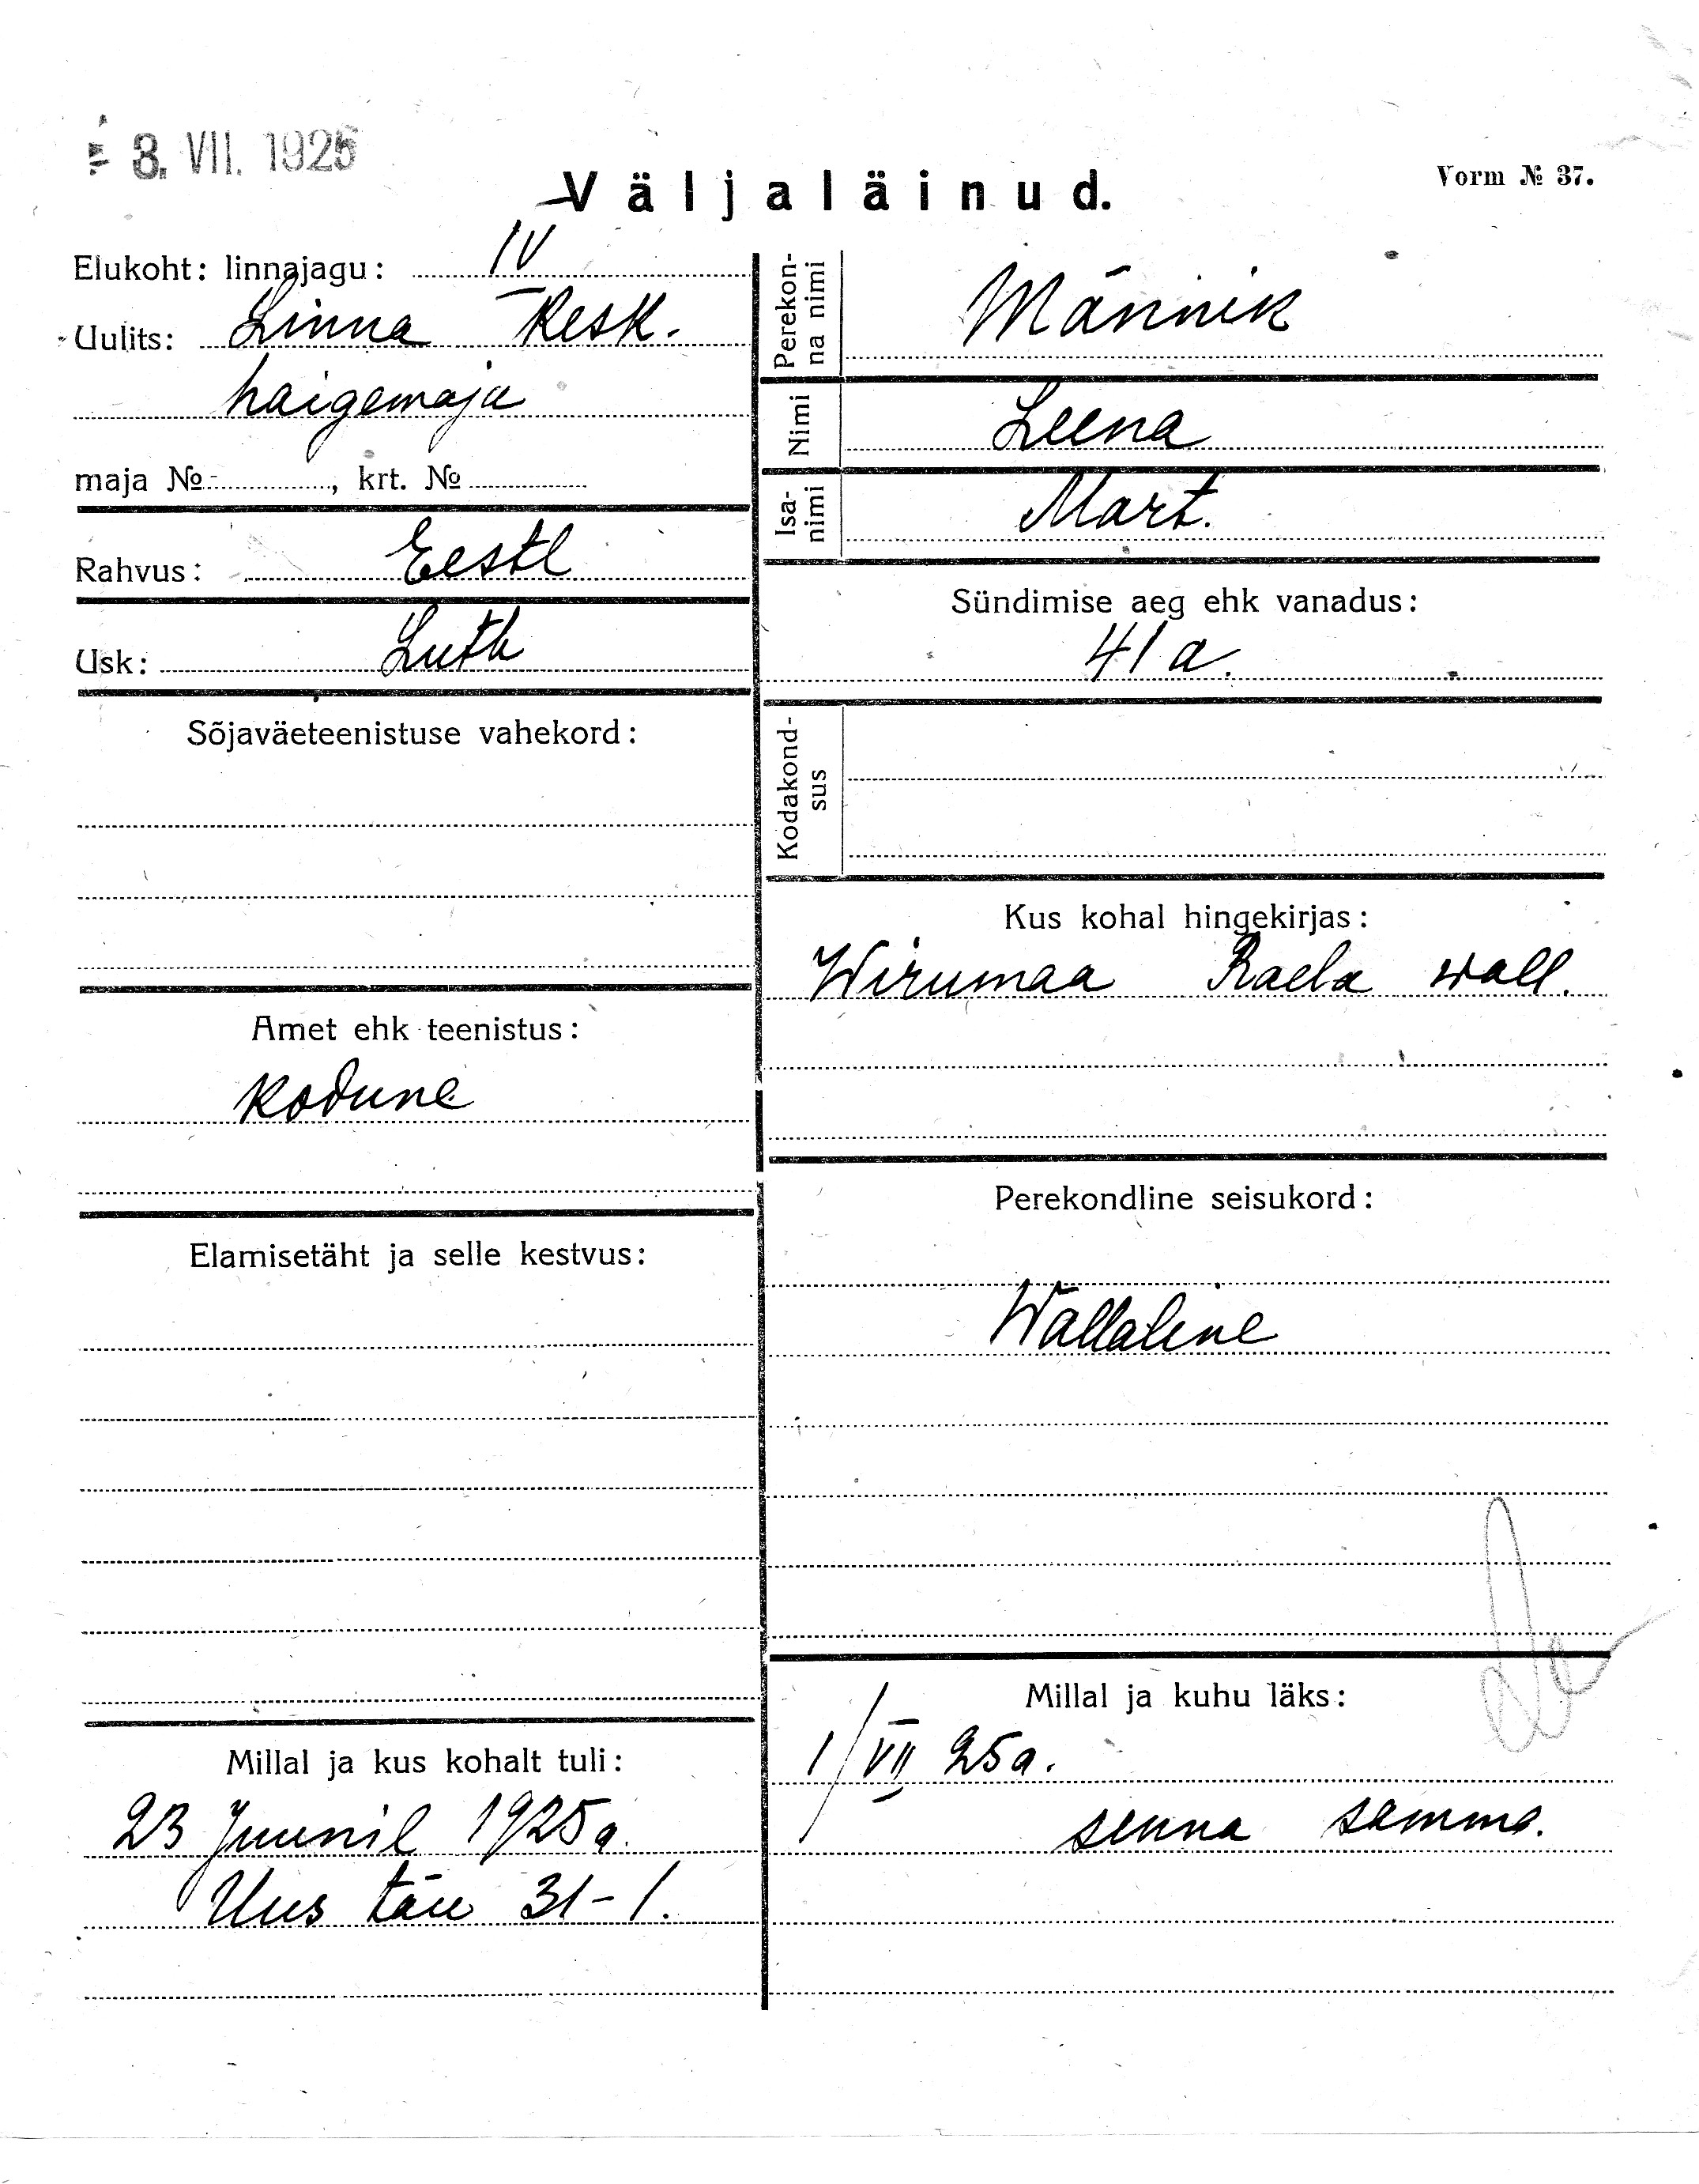 3. VII. 1925
Väljaläinud.
Vorm № 37.
Elukoht: linnajagu: IV
Uulits: Linna Kesk-
haigemaja
maja № , krt. №
Rahvus: Eesti
Usk: Luth
Sõjaväeteenistuse vahekord:
Amet ehk teenistus:
Kodune
Elamisetäht ja selle kestvus:
Millal ja kus kohalt tuli:
23 Juunil 1925 a.
Uus tän 31-1.
Perekon-
na nimi
Männik
Nimi
Leena
Isa-
nimi
Mart.
Sündimise aeg ehk vanadus:
41 a.
Kodakond-
sus
Kus kohal hingekirjas:
Wirumaa Raela wall.
Perekondline seisukord:
Wallaline
Millal ja kuhu läks:
1/VII 25 a.
senna samma.